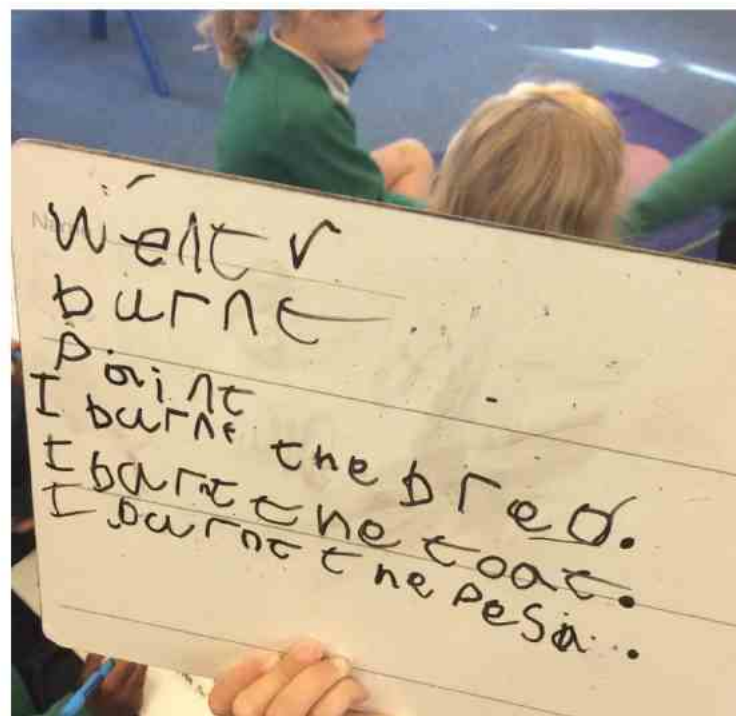 Went
burnt
Point
I burnt the bred.
I burnt the toat.
I burnt the pesa..